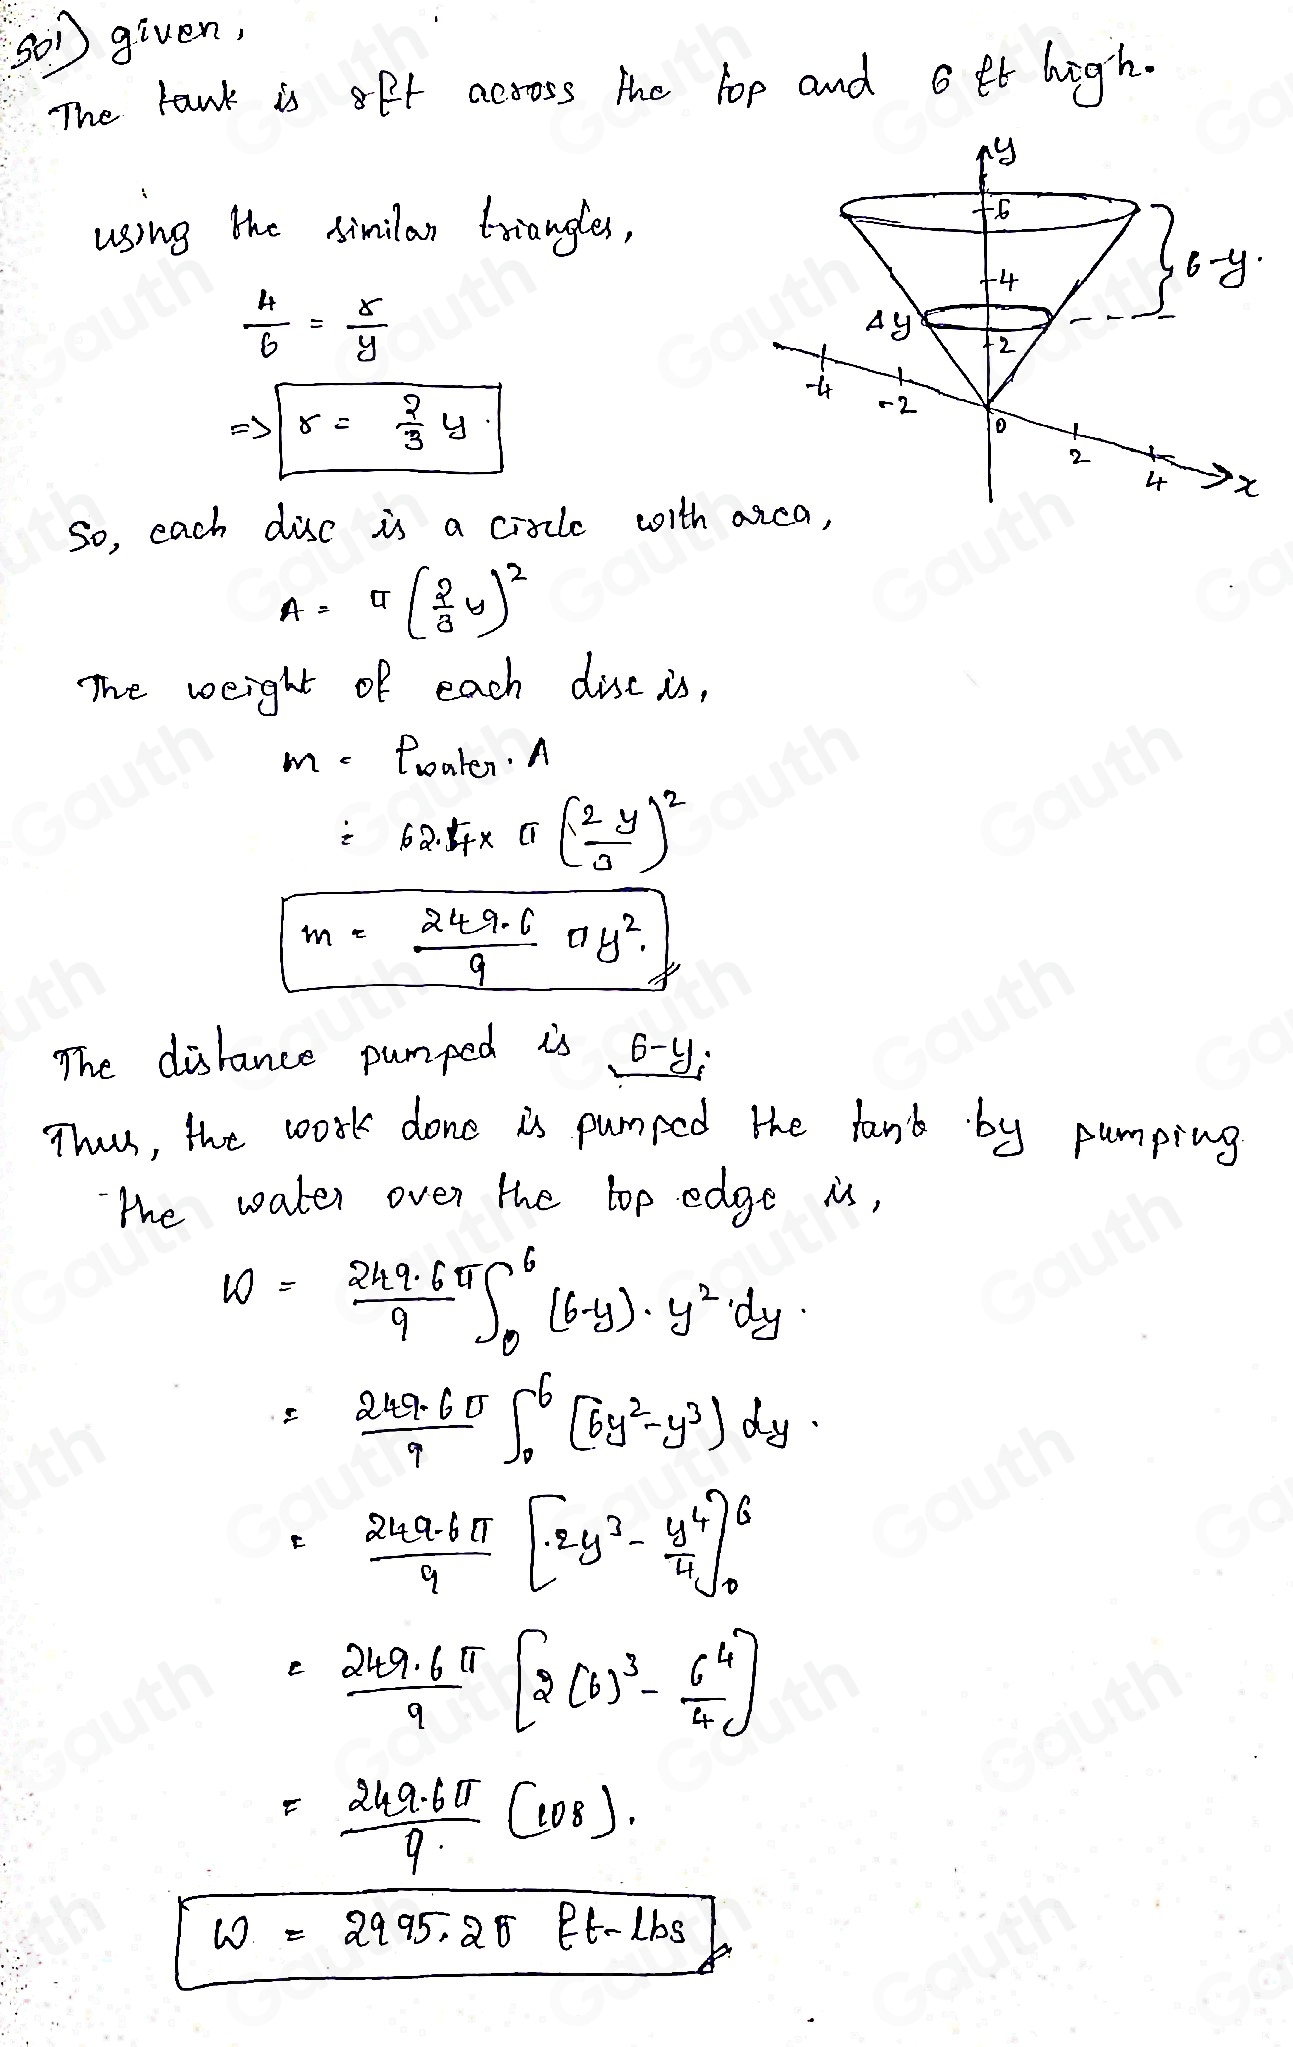 Sol) given,
The tank is 8ft across the top and 6 ft high.
using the similar triangles,
4/6 = r/y
=> r = 2/3 y.
y
6
4
2
0
-4
-2
2
4
x
Δy
6-y.
So, each disc is a circle with area,
A = π (2/3 y)²
The weight of each disc is,
m = ρwater · A
= 62.4 × π (2y/3)²
m = 249.6/9 π y².
The distance pumped is 6-y.
Thus, the work done is pumped the tank by pumping
the water over the top edge is,
W = 249.6π/9 ∫₀⁶ (6-y) · y² · dy.
= 249.6π/9 ∫₀⁶ (6y² - y³) dy.
= 249.6π/9 [2y³ - y⁴/4]₀⁶
= 249.6π/9 [2(6)³ - 6⁴/4]
= 249.6π/9 (108).
W = 2995.2π ft-lbs
Gauth